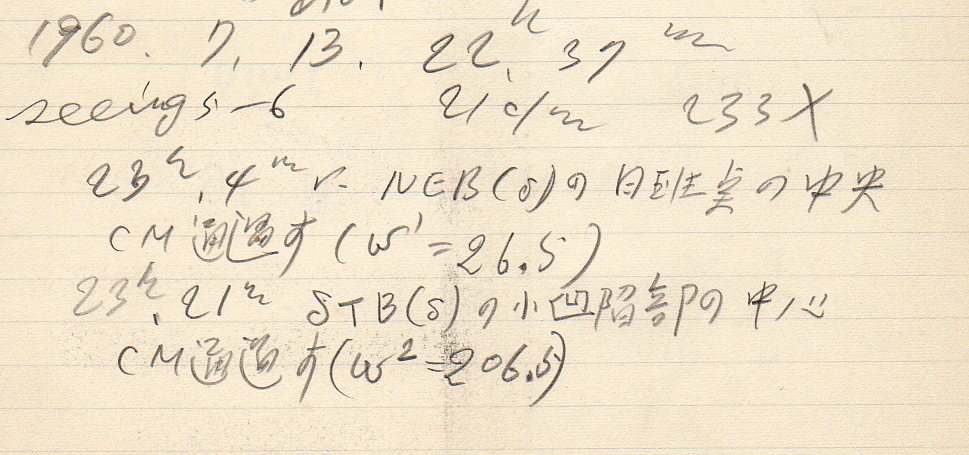 1960. 7, 13. 22h, 37m
seeing 5-6 21c/m 233X
23h, 4m ニ NEB(S)の 白斑点の中央
CM通過す (ω1=26.5)
23h, 21m STB(S)の小凹陥部の中心
CM通過す(ω2=206.5)